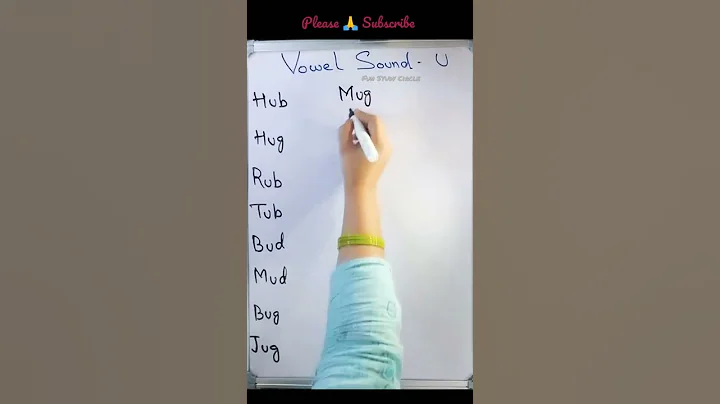 Please 🙏 Subscribe
Vowel Sound - U
Fun Study Circle
Hub
Hug
Rub
Tub
Bud
Mud
Bug
Jug
Mug